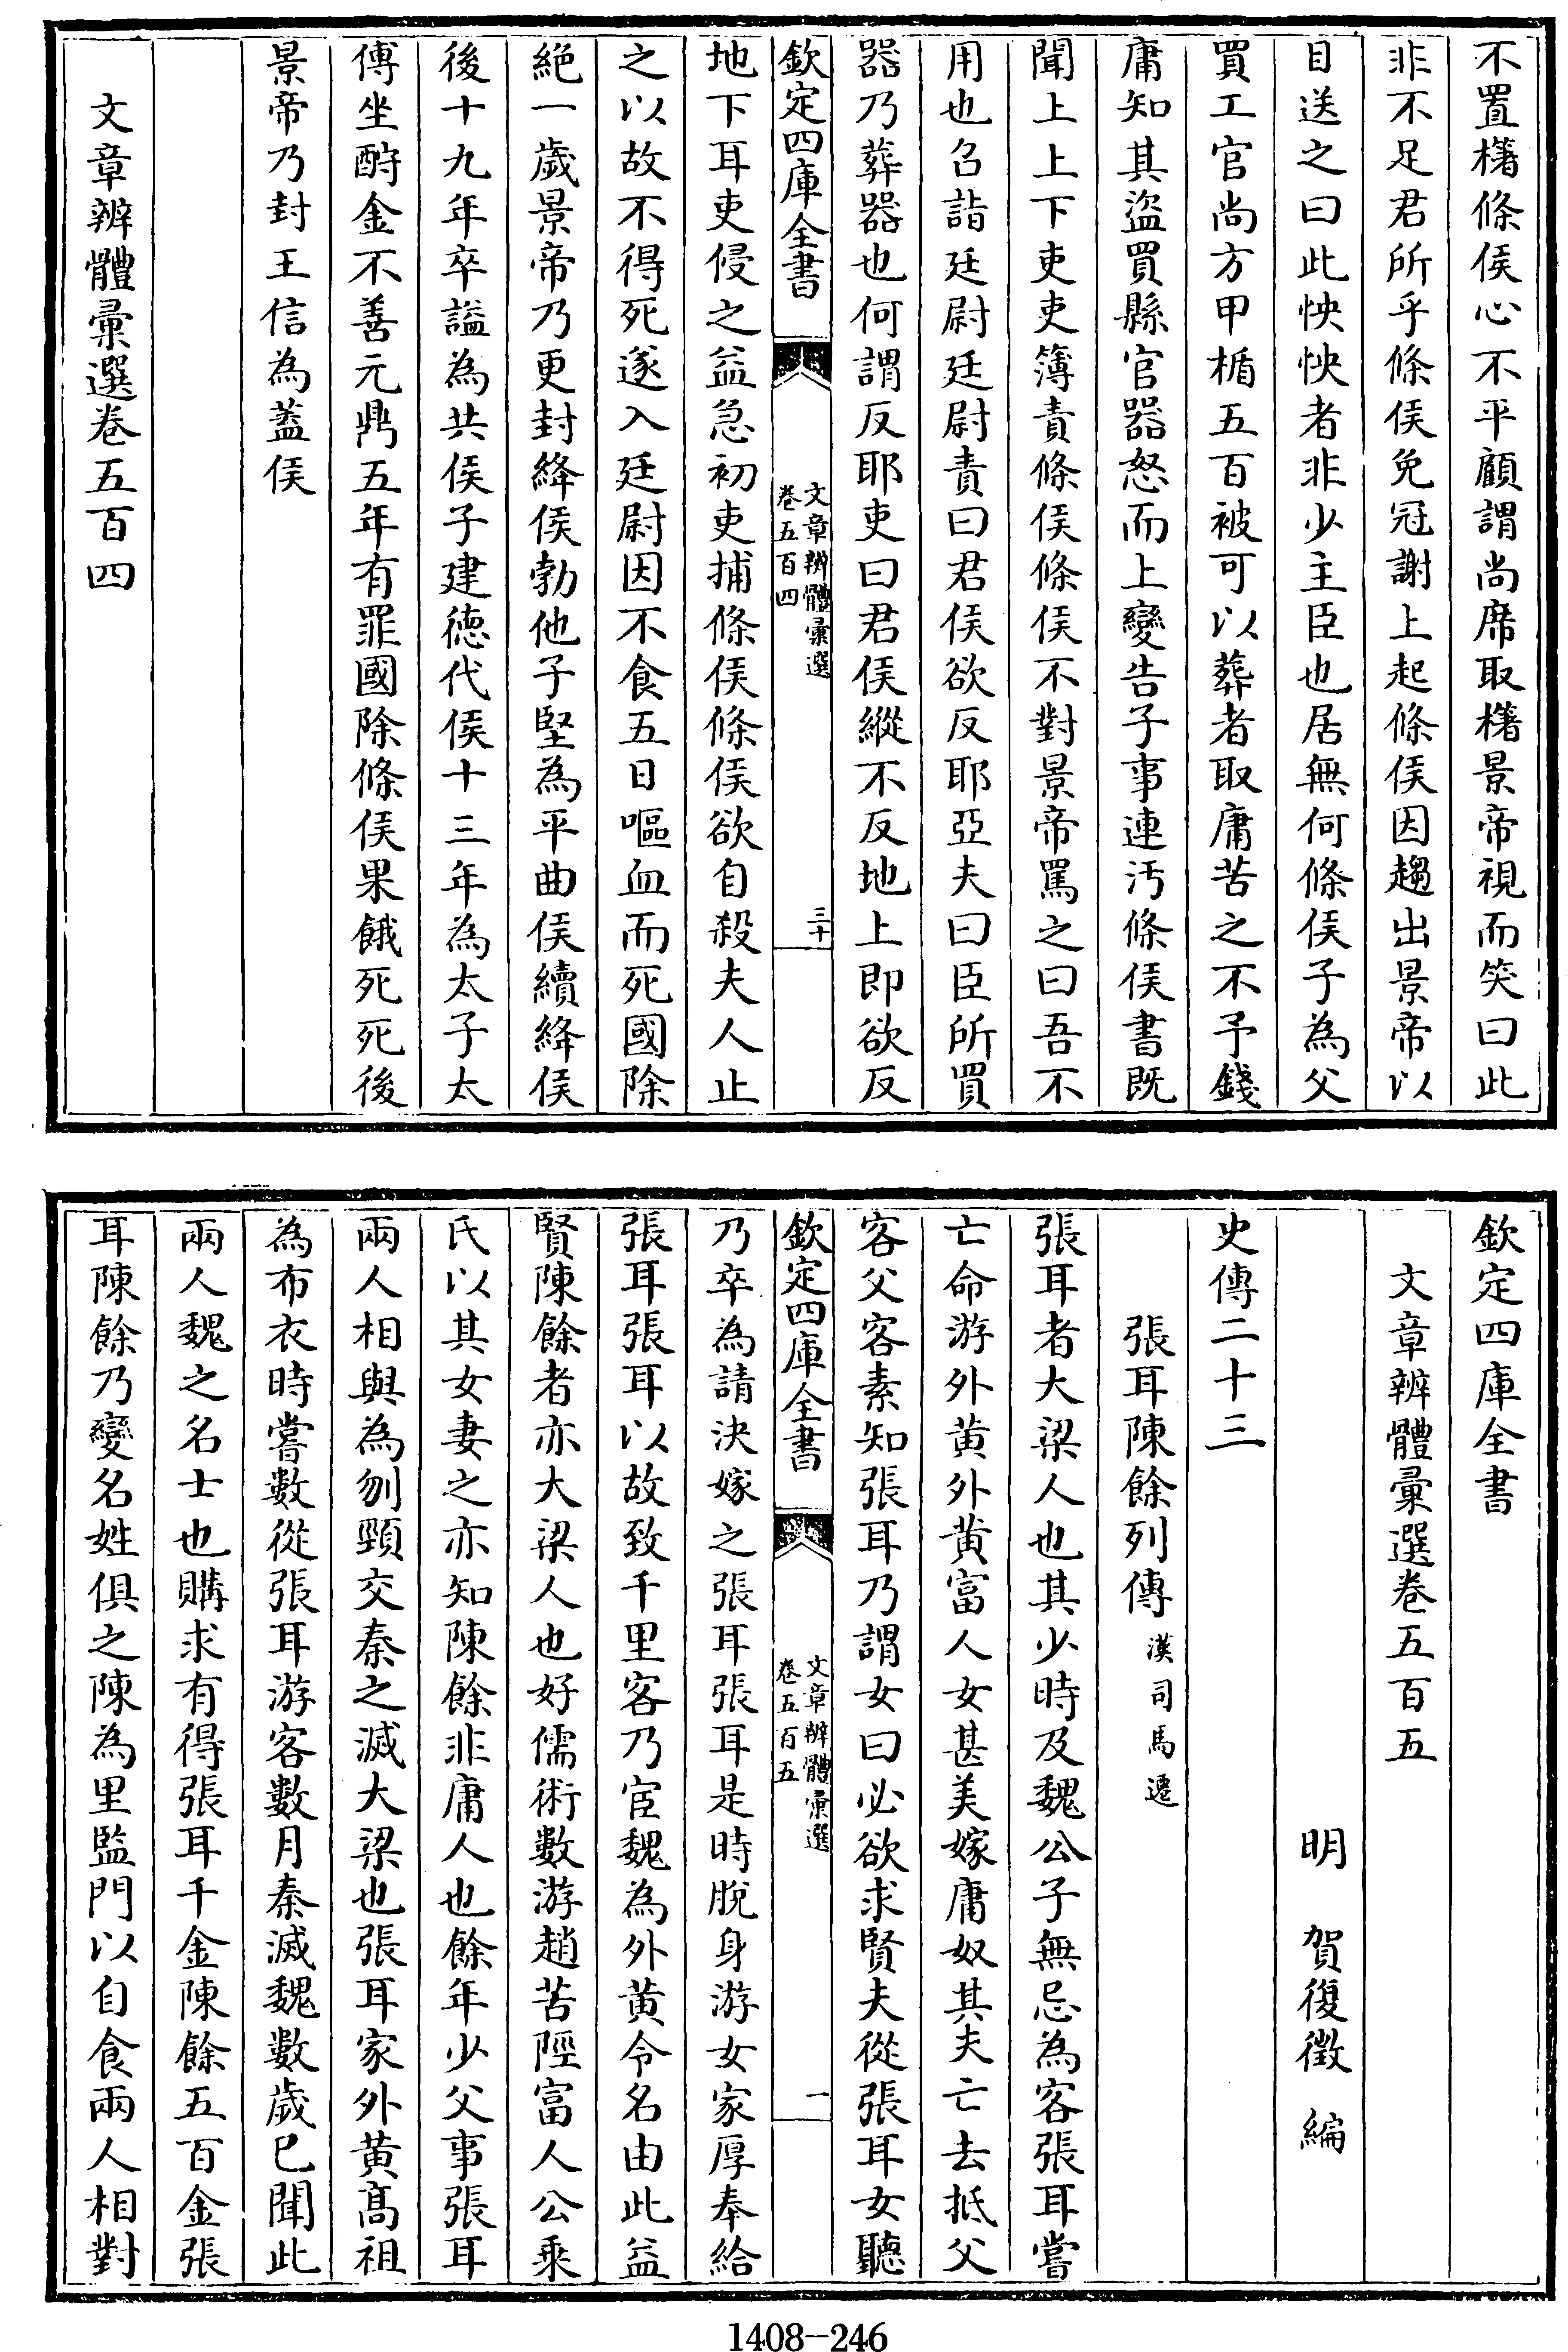 不置櫡條侯心不平顧謂尚席取櫡景帝視而笑曰此
非不足君所乎條侯免冠謝上起條侯因趨出景帝以
目送之曰此怏怏者非少主臣也居無何條侯子為父
買工官尚方甲楯五百被可以葬者取庸苦之不予錢
庸知其盜買縣官器怒而上變告子事連汚條侯書既
聞上上下吏吏簿責條侯條侯不對景帝罵之曰吾不
用也召詣廷尉廷尉責曰君侯欲反耶亞夫曰臣所買
器乃葬器也何謂反耶吏曰君侯縱不反地上即欲反
欽定四庫全書
文章辨體彙選
卷五百四
三十
地下耳吏侵之益急初吏捕條侯條侯欲自殺夫人止
之以故不得死遂入廷尉因不食五日嘔血而死國除
絶一歲景帝乃更封絳侯勃他子堅為平曲侯續絳侯
後十九年卒謚為共侯子建德代侯十三年為太子太
傅坐酎金不善元鼎五年有罪國除條侯果餓死死後
景帝乃封王信為蓋侯
文章辨體彙選卷五百四
欽定四庫全書
文章辨體彙選卷五百五
明 賀復徵 編
史傳二十三
張耳陳餘列傳 漢司馬遷
張耳者大梁人也其少時及魏公子無忌為客張耳嘗
亡命游外黄外黄富人女甚美嫁庸奴其夫亡去抵父
客父客素知張耳乃謂女曰必欲求賢夫從張耳女聽
欽定四庫全書
文章辨體彙選
卷五百五
一
乃卒為請決嫁之張耳張耳是時脫身游女家厚奉給
張耳張耳以故致千里客乃宦魏為外黄令名由此益
賢陳餘者亦大梁人也好儒術數游趙苦陘富人公乘
氏以其女妻之亦知陳餘非庸人也餘年少父事張耳
兩人相與為刎頸交秦之滅大梁也張耳家外黄髙祖
為布衣時嘗數從張耳游客數月秦滅魏數歲已聞此
兩人魏之名士也購求有得張耳千金陳餘五百金張
耳陳餘乃變名姓俱之陳為里監門以自食兩人相對
1408-246